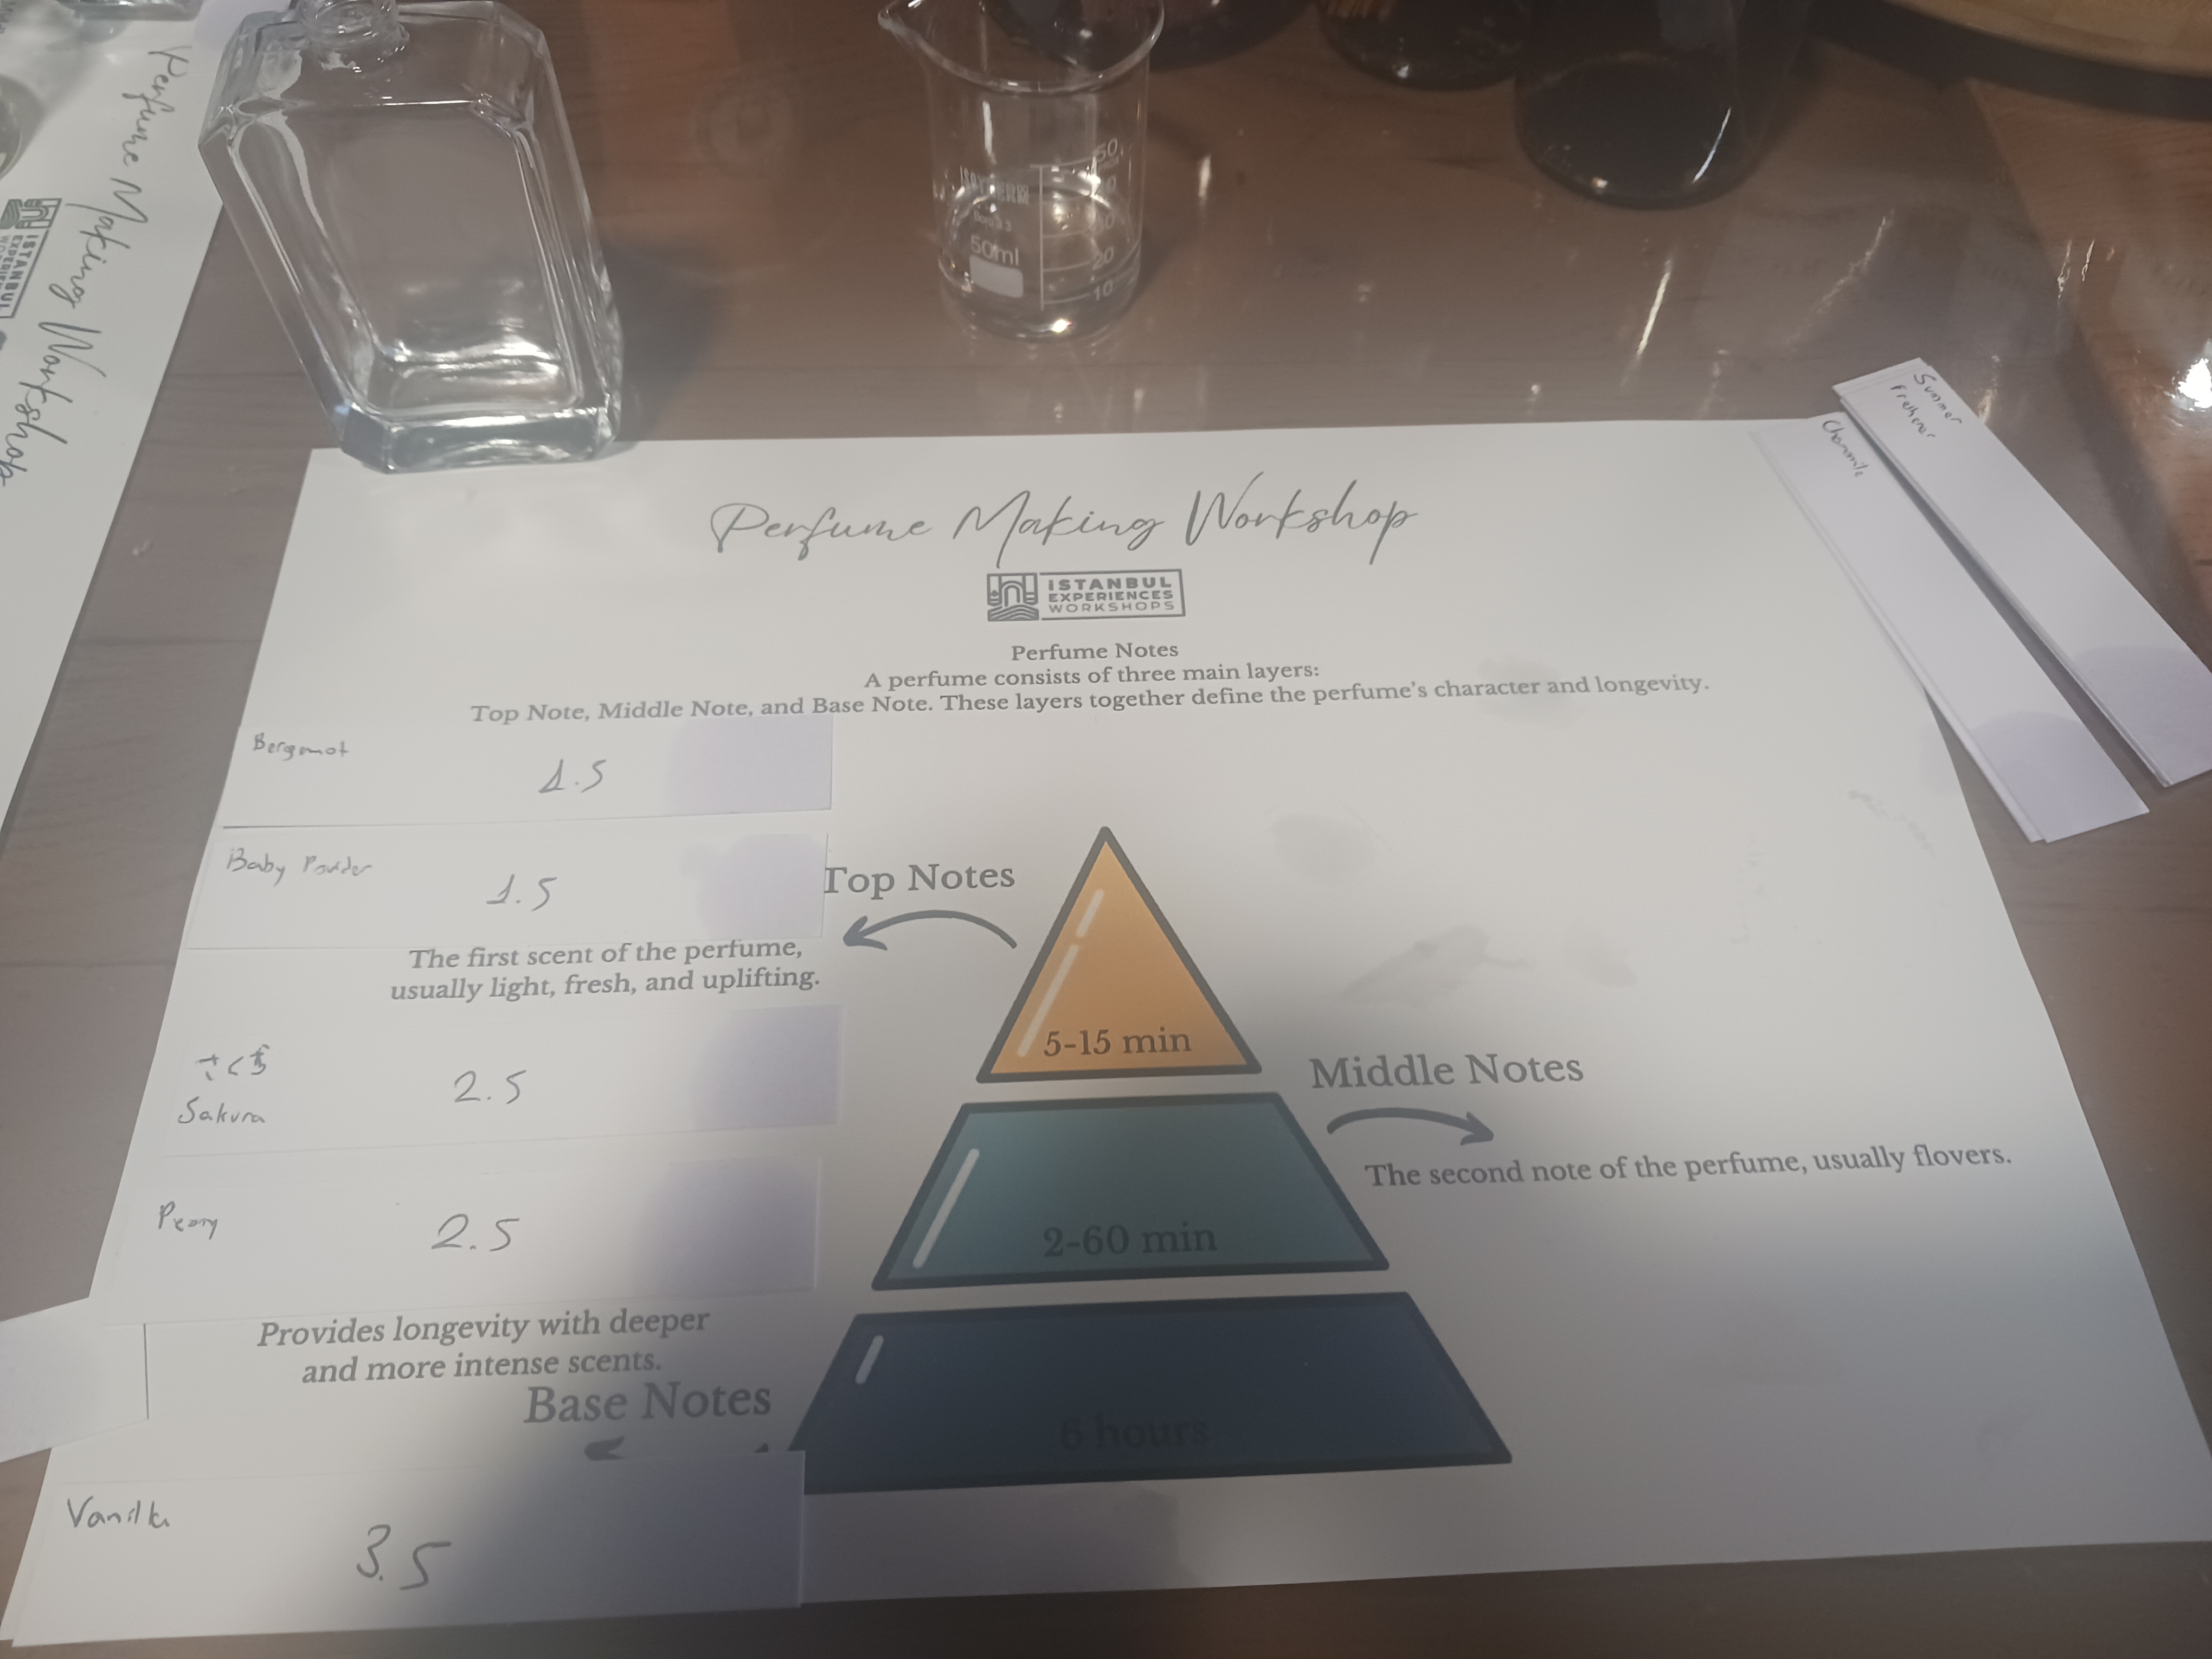 Perfume Making Workshop
ISTANBUL
ISOTHERM
50ml
50
20
10
Summer
Freshener
Chamomile
Perfume Making Workshop
ISTANBUL
EXPERIENCES
WORKSHOPS
Perfume Notes
A perfume consists of three main layers:
Top Note, Middle Note, and Base Note. These layers together define the perfume's character and longevity.
Bergamot
1.5
Baby Powder
1.5
Top Notes
The first scent of the perfume,
usually light, fresh, and uplifting.
5-15 min
さくら
Sakura
2.5
Middle Notes
The second note of the perfume, usually flovers.
Peony
2.5
2-60 min
Provides longevity with deeper
and more intense scents.
Base Notes
6 hours
Vanilla
3.5